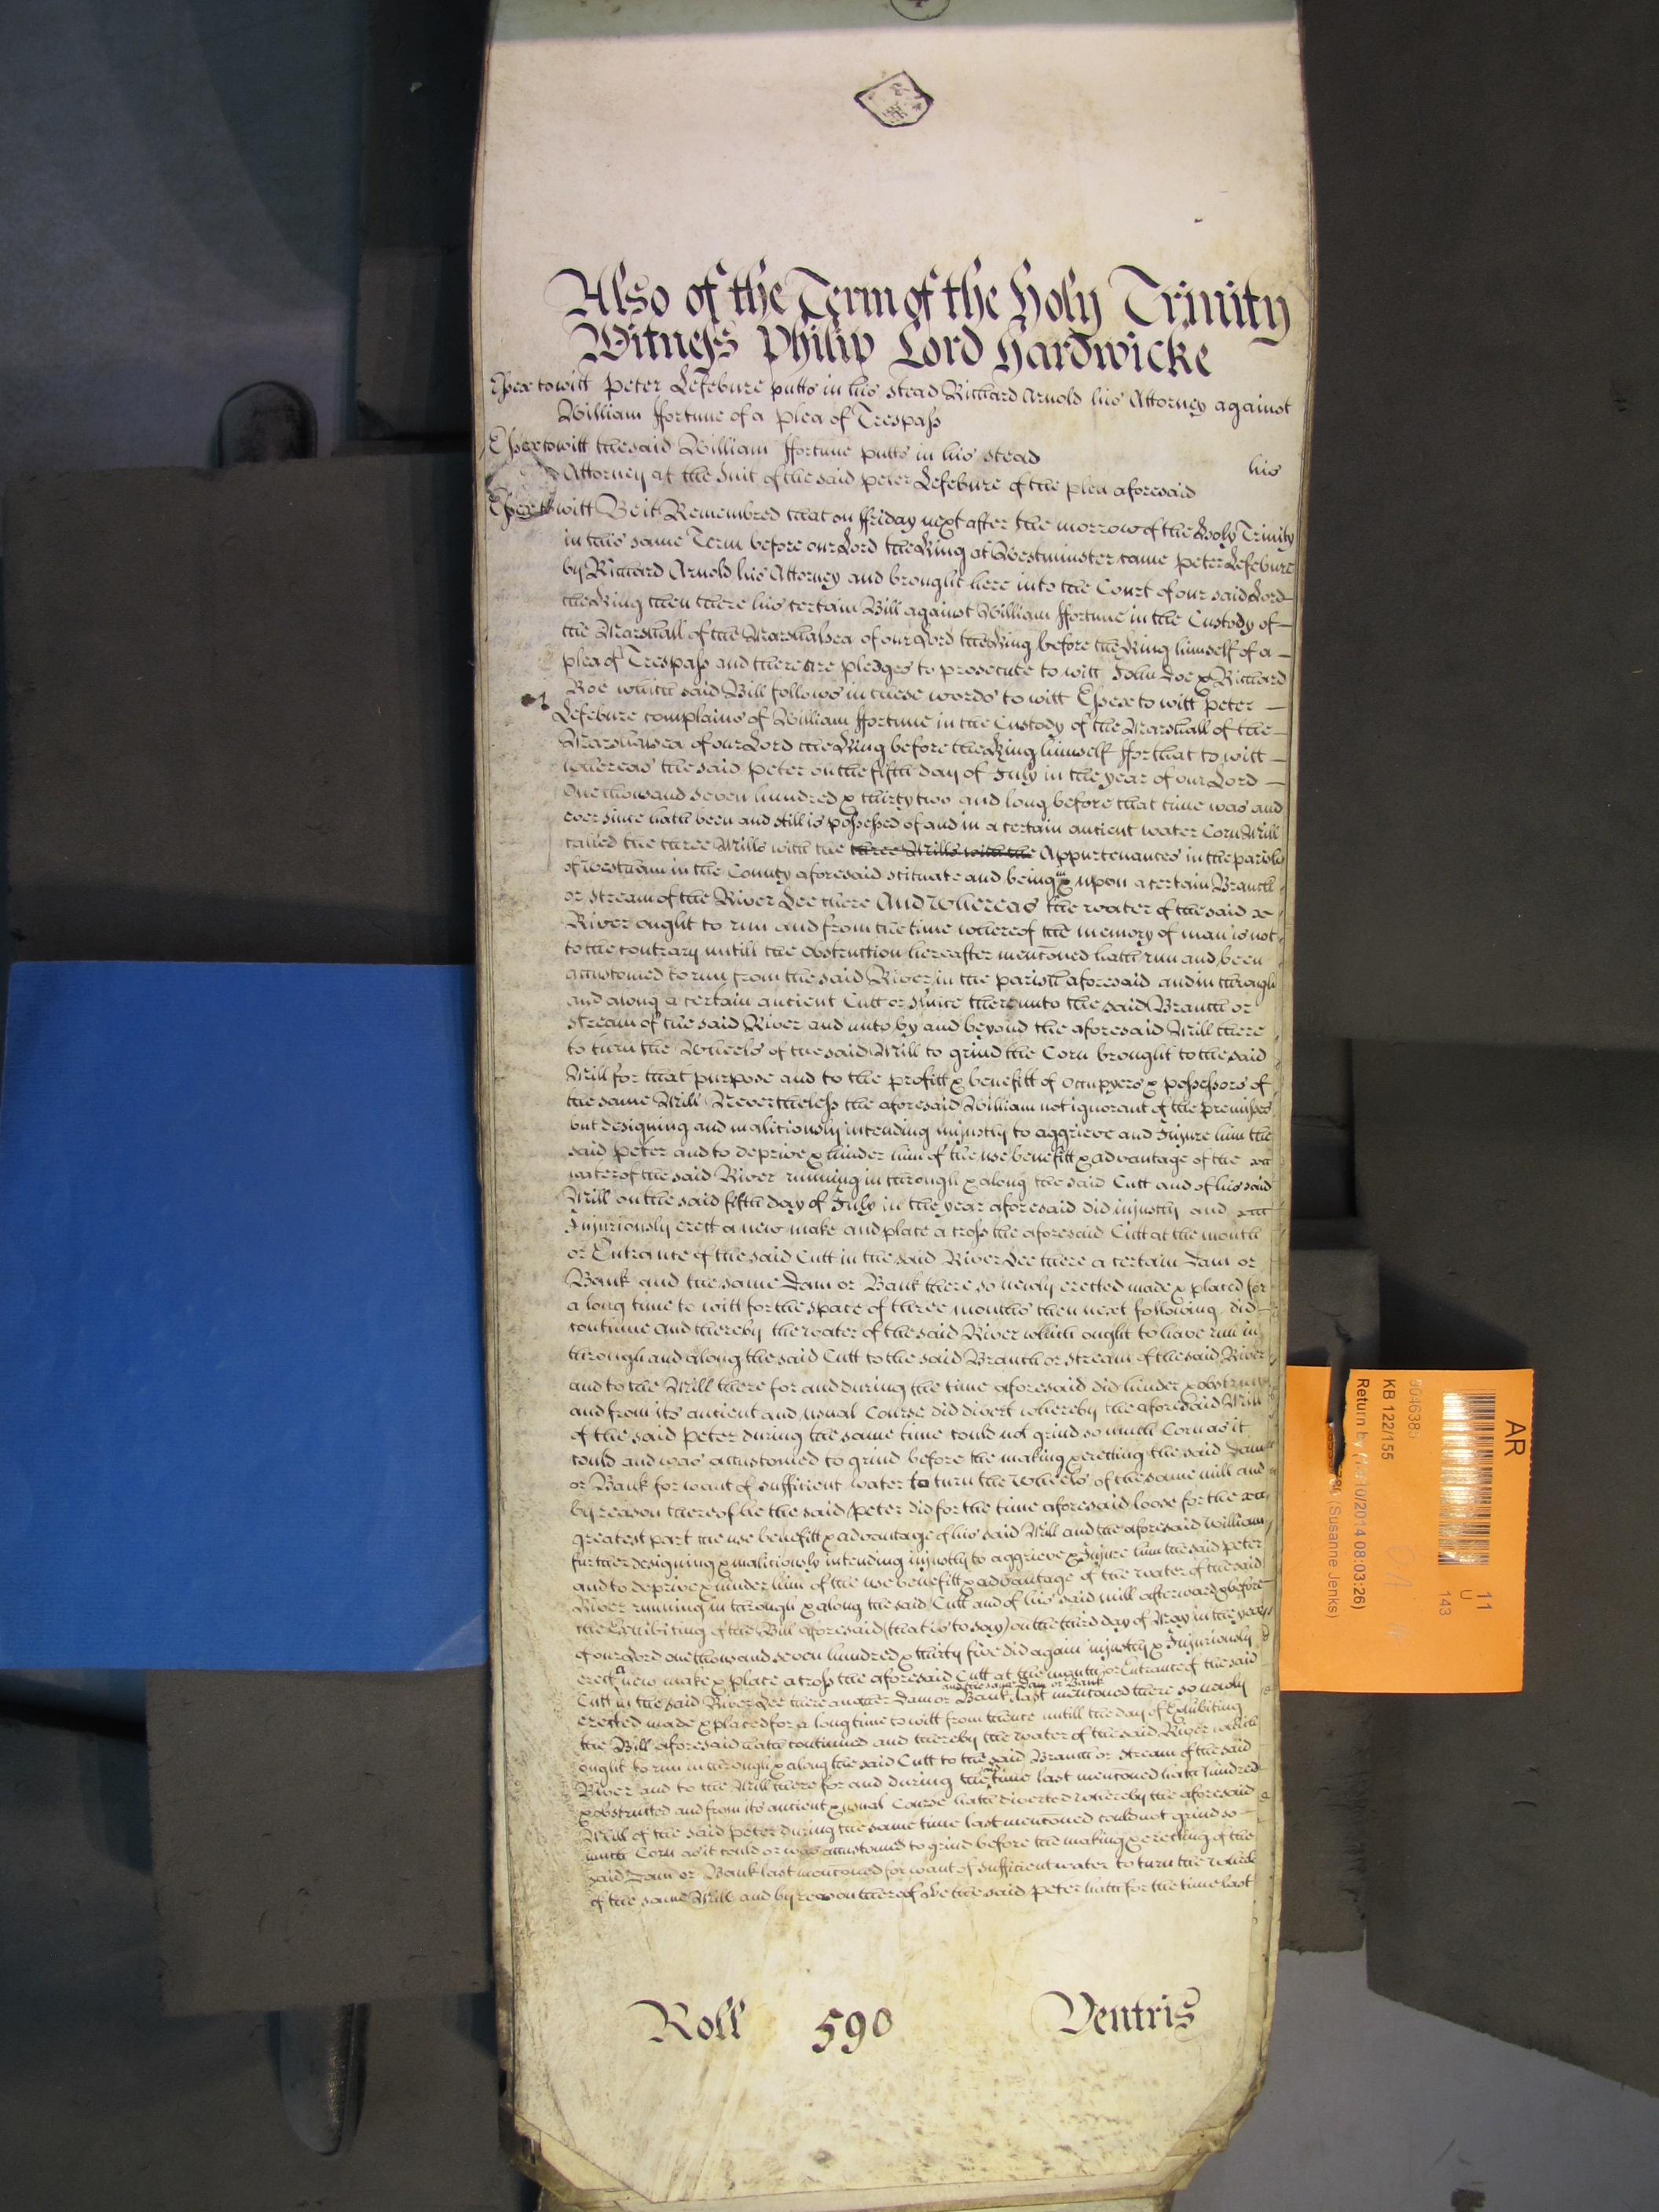 Also of the Term of the Holy Trinity
Witness Philip Lord Hardwicke
Essex to witt Peter Lefebure putts in his stead Richard Arnold his Attorney against
William ffortune of a plea of Trespass
Essex to witt the said William ffortune putts in his stead his
Attorney at the Suit of the said Peter Lefebure of the plea aforesaid
Essex to witt Be it Remembred that on ffriday next after the morrow of the Holy Trinity
in this same Term before our Lord the King at Westminster came Peter Lefebure
by Richard Arnold his Attorney and brought here into the Court of our said Lord
the King then there his certain Bill against William ffortune in the Custody of
the Marshall of the Marshalsea of our Lord the King before the King himself of a
plea of Trespass and there are pledges to prosecute to witt John Doe & Richard
Roe which said Bill follows in these words to witt Essex to witt Peter
Lefebure complains of William ffortune in the Custody of the Marshall of the
Marshalsea of our Lord the King before the King himself ffor that to witt
whereas the said Peter on the fifth day of July in the year of our Lord
One thousand seven hundred & thirty two and long before that time was and
ever since hath been and still is possessed of and in a certain antient water Corn Mill
called the three Mills with the three Mills with the Appurtenances in the parish
of Westham in the County aforesaid scituate and being in & upon a certain Branch
or stream of the River Lee there And Whereas the water of the said
River ought to run and from the time whereof the memory of man is not
to the contrary untill the Obstruction hereafter menconed hath run and been
accustomed to run from the said River in the parish aforesaid and in through
and along a certain antient Cutt or sluice there unto the said Branch or
stream of the said River and unto by and beyond the aforesaid Mill there
to turn the Wheels of the said Mill to grind the Corn brought to the said
Mill for that purpose and to the profitt & benefitt of Occupyers & possessors of
the same Mill Nevertheless the aforesaid William not ignorant of the premisses
but designing and malitiously intending unjustly to aggrieve and Injure him the
said Peter and to deprive & hinder him of the use benefitt & advantage of the
water of the said River running in through & along the said Cutt and of his said
Mill on the said fifth day of July in the year aforesaid did injustly and
Injuriously erect a new make and place across the aforesaid Cutt at the mouth
or Entrance of the said Cutt in the said River Lee there a certain Dam or
Bank and the same Dam or Bank there so newly erected made & placed for
a long time to witt for the space of three months then next following did
continue and thereby the water of the said River which ought to have run in
through and along the said Cutt to the said Branch or stream of the said River
and to the Mill there for and during the time aforesaid did hinder & obstruct
and from its antient and usual Course did divert whereby the aforesaid Mill
of the said Peter during the same time could not grind so much Corn as it
could and was accustomed to grind before the making & erecting the said Dam
or Bank for want of sufficient water to turn the Wheels of the same mill and
by reason thereof he the said Peter did for the time aforesaid loose for the
greatest part the use benefitt & advantage of his said Mill and the aforesaid William
further designing & malitiously intending injustly to aggrieve & Injure him the said Peter
and to deprive & hinder him of the use benefitt & advantage of the water of the said
River running in through & along the said Cutt and of his said mill afterwards & before
the Exhibiting of the Bill aforesaid (that is to say) on the third day of May in the year
of our Lord one thousand seven hundred & thirty five did again injustly & Injuriously
erect a new make & place across the aforesaid Cutt at the mouth or Entrance of the said
Cutt in the said River Lee there another Dam or Bank and the same Dam or Bank last menconed there so newly
erected made & placed for a long time to witt from thence untill the day of Exhibiting
the Bill aforesaid hath continued and thereby the water of the said River which
ought to run in through & along the said Cutt to the said Branch or stream of the said
River and to the Mill there for and during the time last menconed hath hindred
& obstructed and from its antient & usual Course hath diverted whereby the aforesaid
Mill of the said Peter during the same time last menconed could not grind so
much Corn as it could or was accustomed to grind before the making & erecting of the
said Dam or Bank last menconed for want of sufficient water to turn the Wheels
of the same Mill and by reason thereof he the said Peter hath for the time last
Roll 590 Ventris
AR
11
U
143
KB 122/155
Return by (10/2014 08:03:26)
(Susanne Jenks)